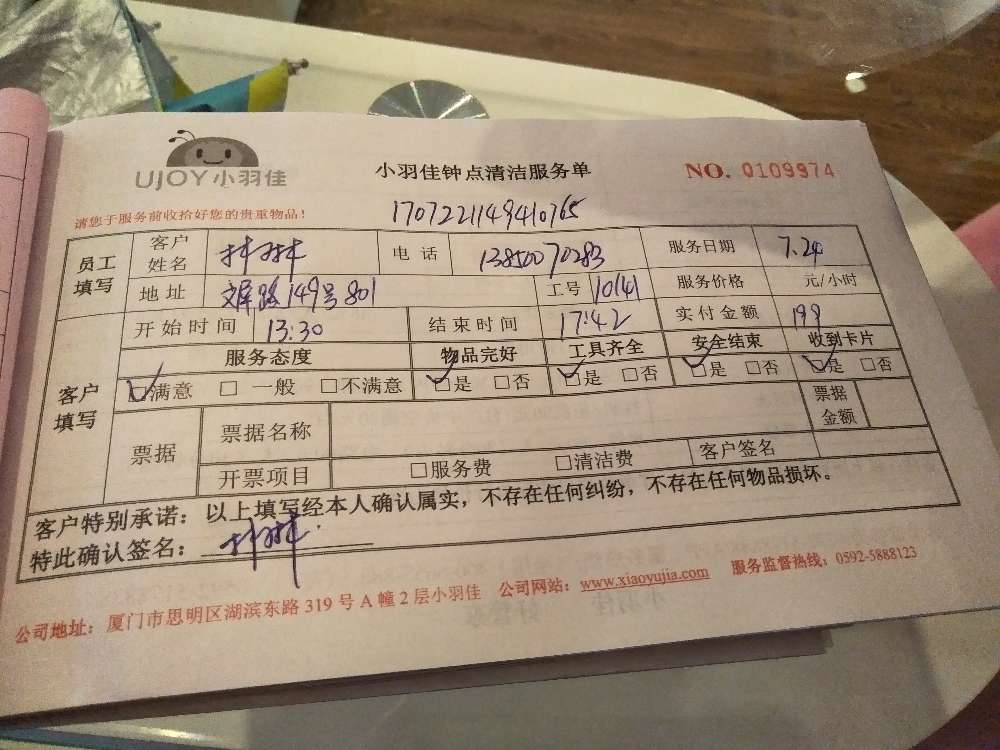 UJOY小羽佳
小羽佳钟点清洁服务单
NO. 0109974
请您于服务前收拾好您的贵重物品!
1707221149410765
员工填写 客户姓名 林林 电话 13850070283 服务日期 7.24
地址 149号801 工号 10141 服务价格 元/小时
客户填写 开始时间 13:30 结束时间 17:42 实付金额 199
服务态度 物品完好 工具齐全 安全结束 收到卡片
☑满意 □一般 □不满意 ☑是 □否 ☑是 □否 ☑是 □否 ☑是 □否
票据 票据名称 票据金额
开票项目 □服务费 □清洁费 客户签名
客户特别承诺：以上填写经本人确认属实，不存在任何纠纷，不存在任何物品损坏。
特此确认签名： 林林
公司地址：厦门市思明区湖滨东路319号A幢2层小羽佳 公司网站：www.xiaoyujia.com 服务监督热线：0592-5888123